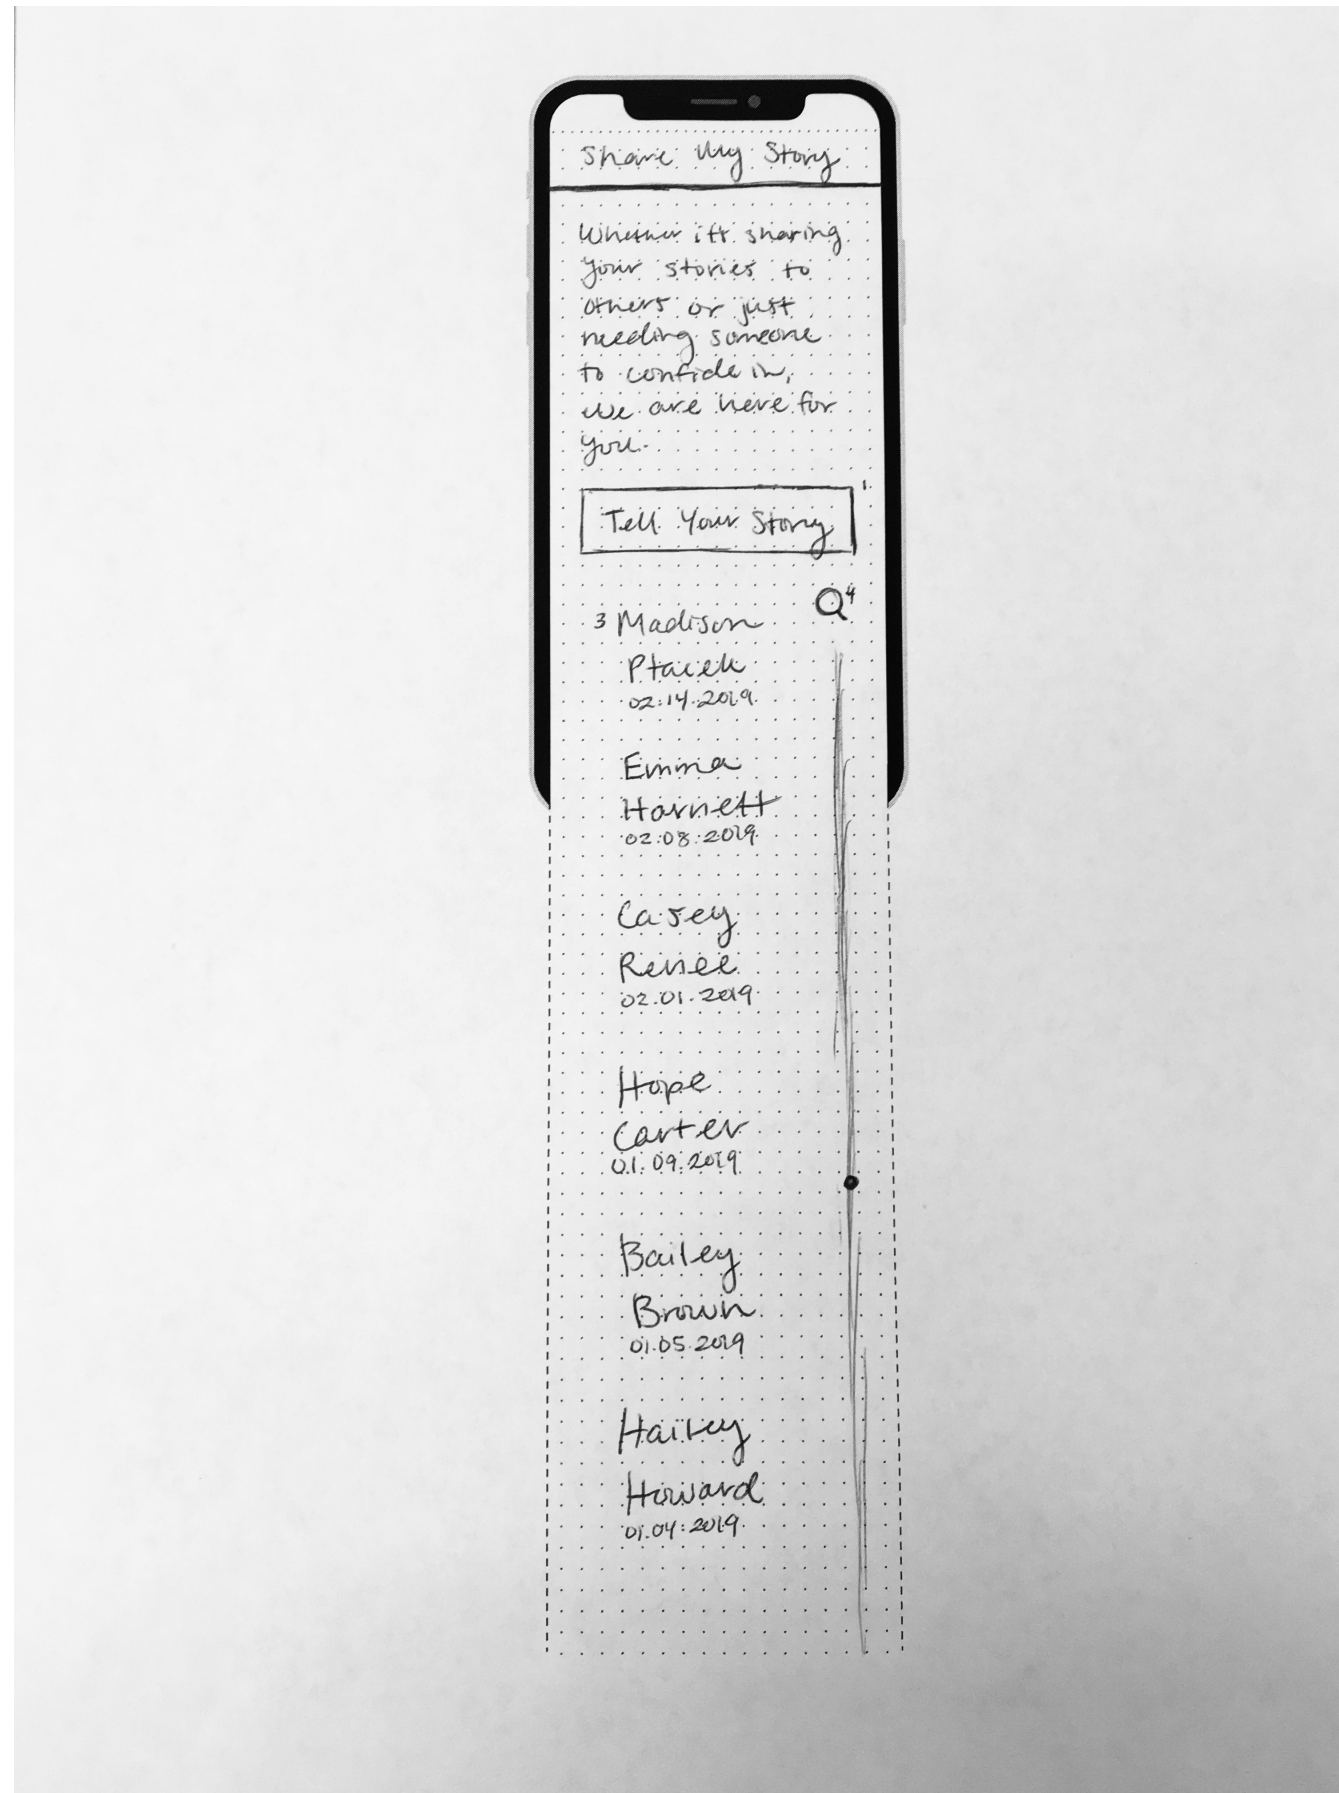 Share My Story
Whether it's sharing
your stories to
others or just
needing someone
to confide in,
we are here for
you.
1
Tell Your Story
4
3 Madison
Ptacek
02.14.2019
Emma
Harnett
02.08.2019
Casey
Renee
02.01.2019
Hope
Carter
01.09.2019
Bailey
Brown
01.05.2019
Hailey
Howard
01.04.2019